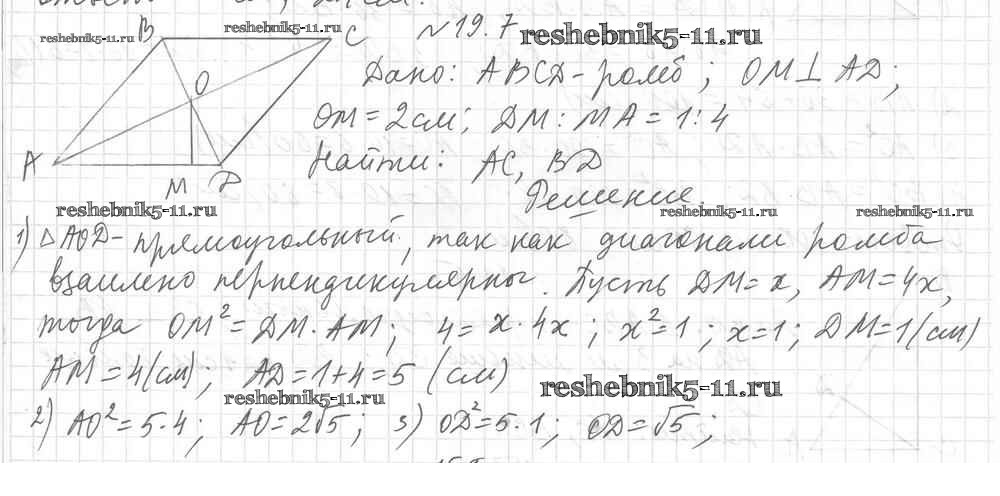 reshebnik5-11.ru
B
reshebnik5-11.ru
C
№19.7
reshebnik5-11.ru
O
Дано: ABCD - ромб; OM⊥AD;
OM = 2см; DM : MA = 1:4
A
Найти: AC, BD
M D
Решение.
reshebnik5-11.ru
reshebnik5-11.ru
reshebnik5-11.ru
1) △AOD - прямоугольный, так как диагонали ромба
взаимно перпендикулярны. Пусть DM = x, AM = 4x,
тогда OM² = DM · AM; 4 = x · 4x; x² = 1; x = 1; DM = 1 (см)
AM = 4 (см); AD = 1 + 4 = 5 (см)
reshebnik5-11.ru
reshebnik5-11.ru
2) AO² = 5 · 4; AO = 2√5; 3) OD² = 5 · 1; OD = √5;